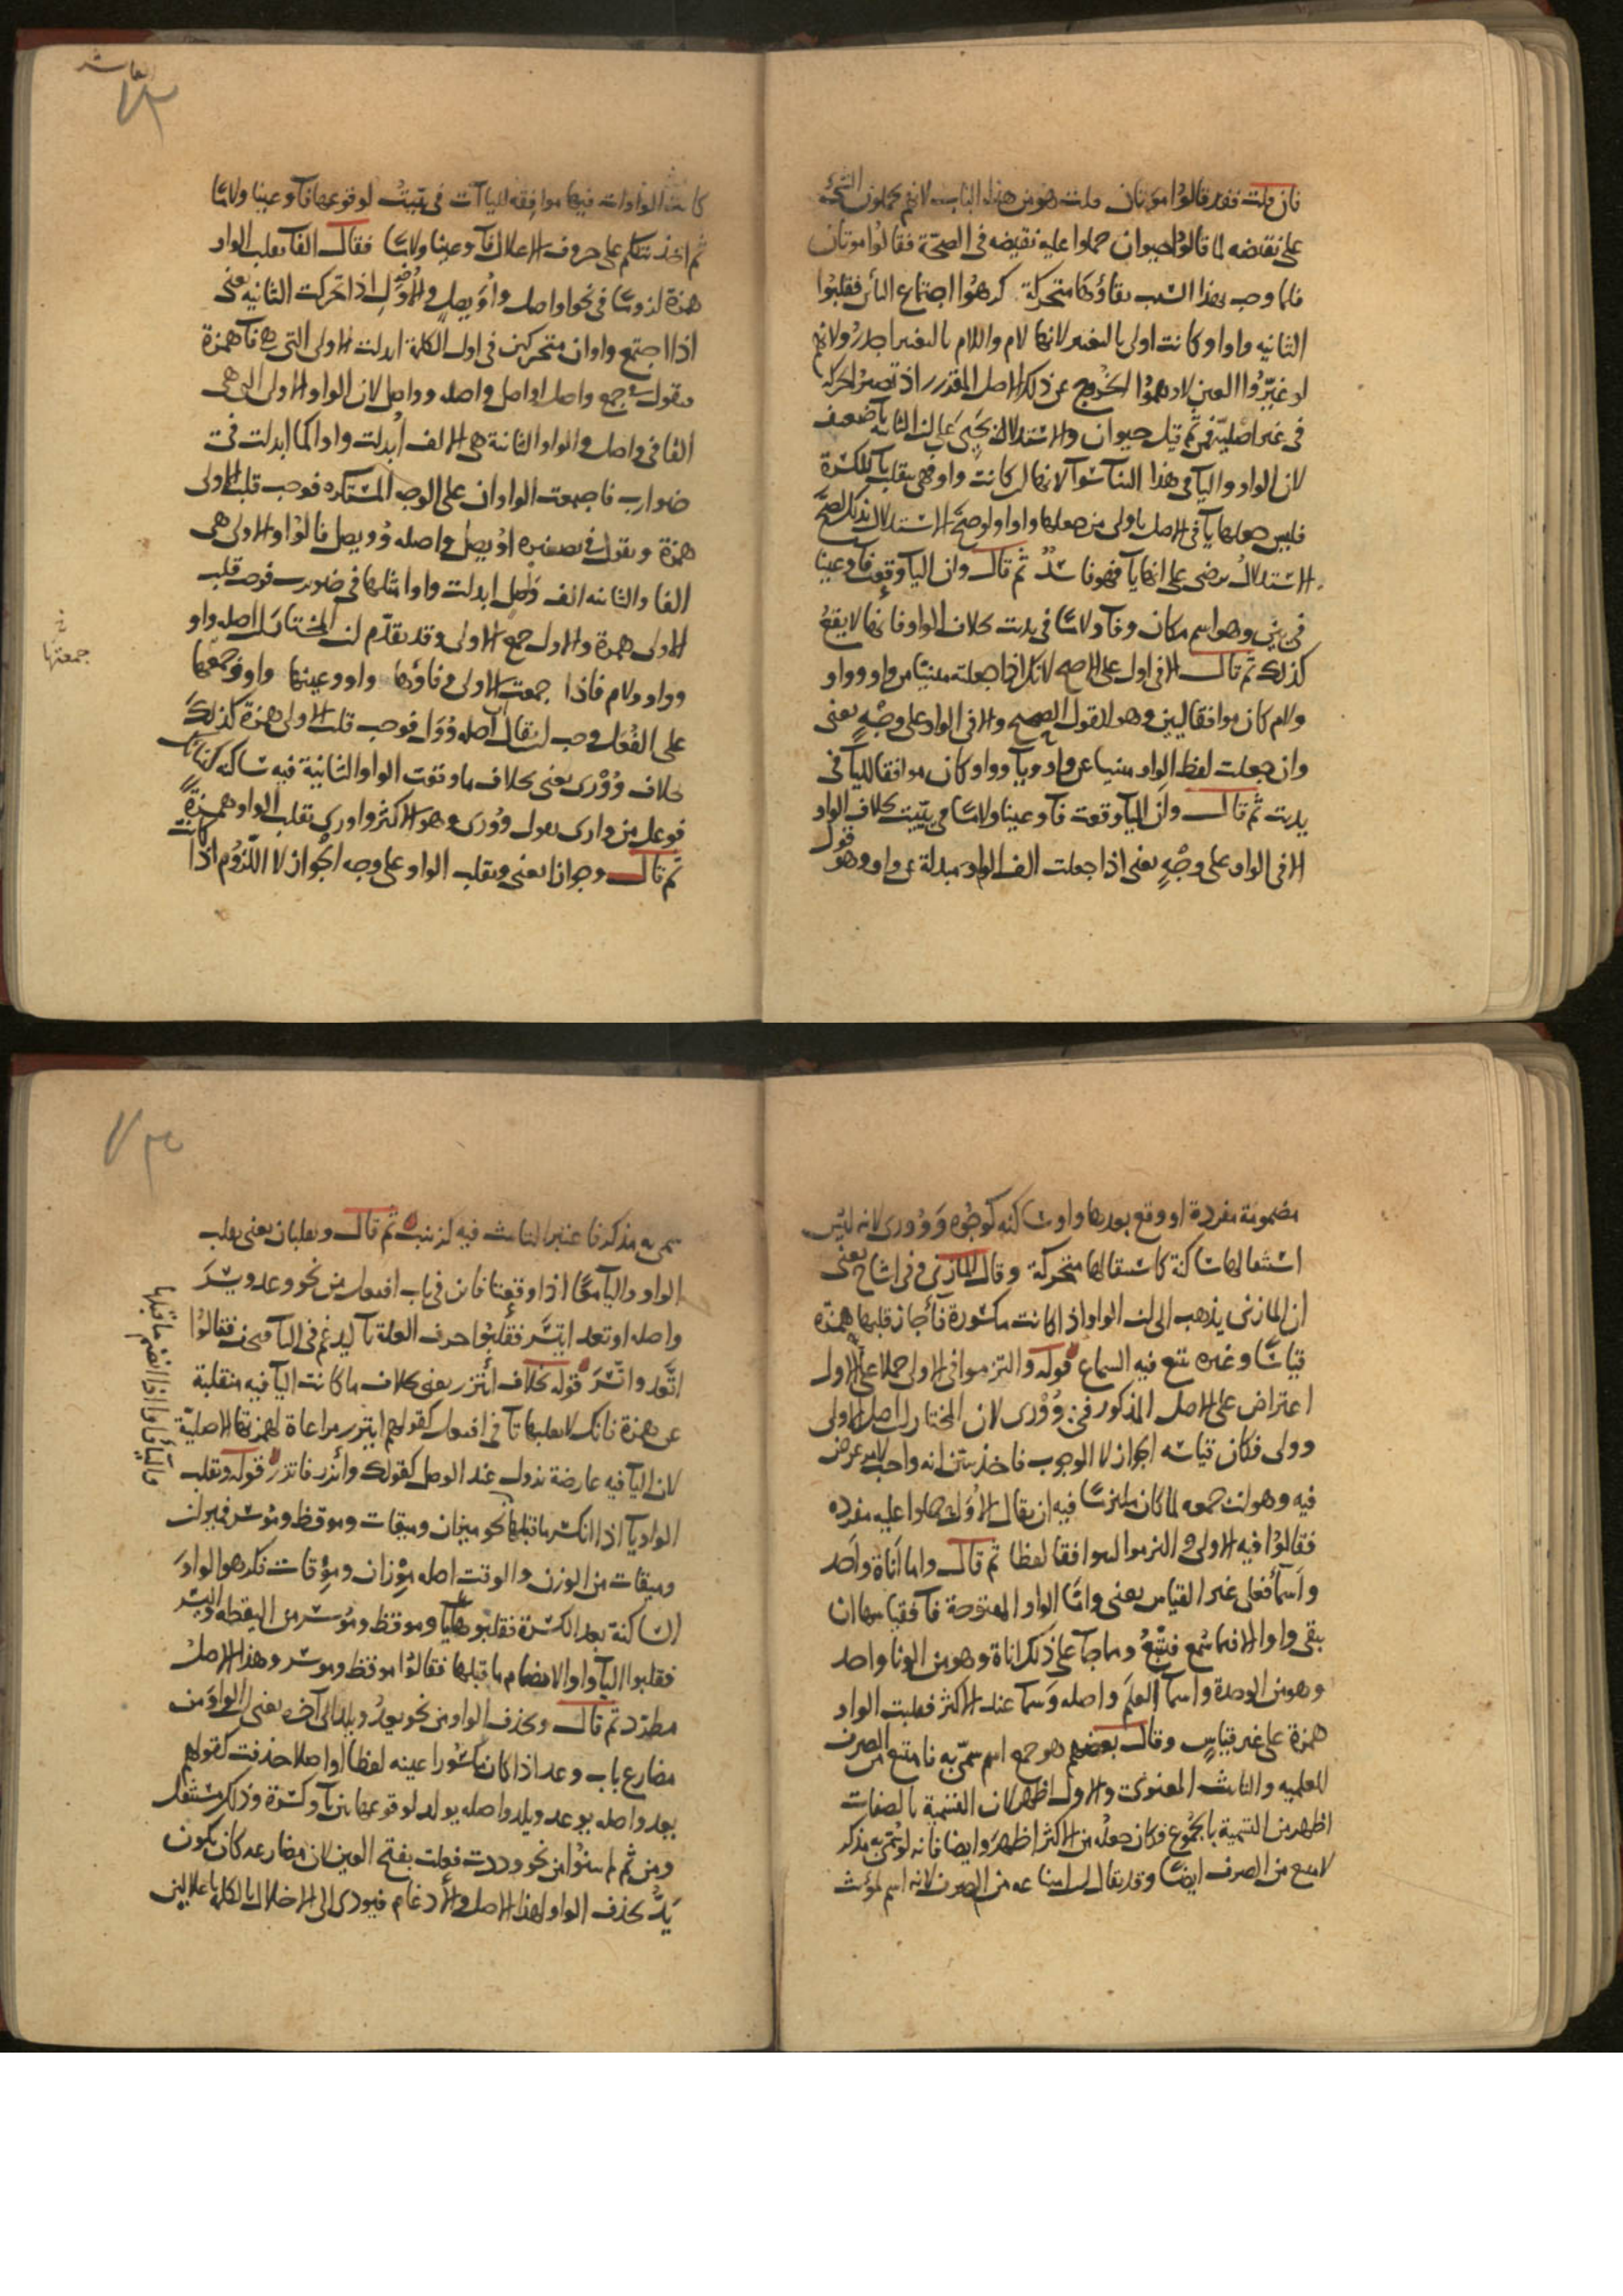 فان قلت فقد قالوا موتان قلت هو من هذا الباب لانهم يحملون الشئ
على نقيضه لما قالوا حيوان حملوا عليه نقيضه في الصحّة فقالوا موتان
فلما وجب بهذا السبب بقاؤها متحركة كرهوا اجتماع اليائين فقلبوا
الثانيه واوا وكانت اولى بالتغيير لانها لام واللام بالتغيير اجدر ولانهم
لو غيّروا العين لاوهموا الخروج عن ذلك الاصل المقدر اذ تصير الحركة
في غير اصليّة فمن ثم قيل حيوان والاستدلال بحيى على ان الثانيه يا ضعيف
لان الواو واليا في هذا البنا سوآ لانها لو كانت واو فهي تنقلب يآ للكسرة
فليس جعلها يآ في الاصل باولى من جعلها واوا ولو صحّ الاستدلال بذلك لصحّ
الاستدلال برضي على انها يآ فهو فاسدٌ ثم قال وان اليآ وقعت فآ وعينا
في يين وهو اسم مكان وفآ ولامًا في يديت بخلاف الواو فانها لا يقع
كذلك ثم قال الا في اول على الاصح لانك اذا جعلته مبنيّا من واو وواو
ولام كان موافقا ليين وهو القول الصحيح والا في الواو على وجْهٍ يعني
وان جعلت لفظ الواو مبنيا عن واو ويآ وواو كان موافقا لليآ في
يديت ثم قال وان اليآ وقعت فآ وعينا ولامًا في يَيّيت بخلاف الواو
الا في الواو على وجْهٍ يعني اذا جعلت الف الواو مبدلة عن واو وهو قول
العاشر
٧٣
كانت الواوات فيها موافقه لليا آت في ييّيتُ لوقوعها فآ وعينا ولامًا
ثم اخذ يتكلم على حروف الاعلال فآ وعينا ولامًا فقال الفآ تقلب الواو
همزة لزومًا في نحو اواصل واُوَيصِل والاُوَلِ اذا تحركت الثانيه يعني
اذا اجتمع واوان متحركتين في اول الكلمة ابدلت الاولى التي هي فآ همزة
فيقول في جمع واصل اواصل واصله وواصل لان الواو الاولى التي هي
الفا في واصل والواو الثانية هي الالف اُبدلت واوا كما ابدلت في
ضوارب فاجتمعت الواوان على الوجه المستكره فوجب قلب الاولى
همزة ويقول في تصغيره اوُيصل واصله وُويصل فالواو الاولى هي
الفا والثانيه الف واصل ابدلت واوا مثلها في ضويرب فوجب قلب
الاولى همزة والاول جمع الاولى وقد تقدّم ان المختار ان اصله واو
وواو ولام فاذا جمعت الاولى وفاؤها واو وعينها واو وجمعها
جمعتها
على الفُعَل وجب ان يقال اصله وُوَل فوجب قلب الاولى همزة كذلك
بخلاف وُوْرى يعني بخلاف ما وقعت الواو الثانية فيه ساكنه كبنائك
فوعل من وارى يقول وُوْرى وهو الاكثر واورى تقلب الواو همزةً
ثم قال وجوازا يعني وتقلب الواو على وجه الجواز لا اللّزُوم اذا كانت
مضمومة مفردة او وقع بعدها واو ساكنه كوجُوه وَوُورى لانه ليس
استثقالها ساكنة كاستثقالها متحركة وقال المازني وفي اشاح يعني
ان المازني يذهب الى ان الواو اذا كانت مكسورة فأجاز قلبها همزة
قياسًا وغيره يتبع فيه السماع قوله والتزموا في الاولى حملا على الاول
اعتراض على الاصل المذكور في وُوْرى لان المختار ان اصل الاولى
وولى فكان قياسه الجواز لا الوجوب فاخذ يبيّن انه واجب لامر عرض
فيه وهو ان جمعه لما كان ملتزمًا فيه ان يقال الاُوَل حملوا عليه مفرده
فقالوا فيه الاولى التزموا ليتوافقا لفظا ثم قال واما اَناة واَحد
واَسمآ فعلى غير القياس يعني وامّا الواو المفتوحة فآ فقياسها ان
يبقى واوا الا فيما سُمع فيتّبعُ ومما جآ على ذلك اناة وهو من الونا واحد
وهو من الوحدة واسمآ العَلَم واصله وَسمآ عند الاكثر فقلبت الواو
همزة على غير قياسٍ وقال بعضهم هو جمع اسم سُمّي به فامتنع من الصرف
للعلميه والتانيث المعنوي والاول اظهر لان التسمية بالصفات
اظهر من التسمية بالجموع فكان جعلُه من الاكثر اظهرَ وايضا فانه لو سُمّي به مذكر
لامتنع من الصرف ايضًا وقد يقال ان امتناعه من الصرف لانه اسم لمؤنث
٧٤
سمى به مذكر فاعتبر التانيث فيه لزينب ثم قال وتقلبان يعني يقلب
الواو واليآ معًا اذا وقعتا فائين في باب افتعل من نحو وعد ويسَرَ
واصله اوتعد ايتسَر فقلبُوا حرف العلة تآ ليدغم في التآ فقالوُا
اتَّعد واتّسَرَ قوله بخلاف ايتزر يعني بخلاف ما كانت اليآ فيه منقلبة
عن همزة فانك لا تقلبها تآ في افتعل كقولهم ايتزر مراعاة لهمزتها الاصليّة
لان اليآ فيه عارضة تزول عند الوصل كقولك وأتزر فاتزر قوله وتقلب
الواو يآ اذا انكسر ما قبلها نحو ميزان وميقات وموقظ ومُوسر فميزان
واليا واوا اذا انضم ما قبلها
وميقات من الوزن والوقت اصله مِوْزان ومِوْقات فكرهوا الواوَ
الساكنة بعد الكسرة فقلبوها يآ وموقظ ومُوسر من اليقظه واليسر
فقلبوا اليآ واوا لانضمام ما قبلها فقالوُا موقظ وموسر وهذا الاصلُ
مطّرد ثم قال ويحذف الواو من نحو يعِدُ ويلِدُ الى آخره يعني ان الواوَ من
مضارع باب وعد اذا كان مكسُورا عينه لفظا او اصلا حذفت كقولهم
يعد واصله يوعد ويلد واصله يولد لوقوعها بين يآ وكسْرة وذلك مستثقل
ومن ثم لم يبنُوا من نحو وددت فعلت بفتح العين لان مضارعه كان يكون
يَدُّ بحذف الواو لهذا الاصل والأدغام فيودى الى الاخلال بالكلمة باعلالين